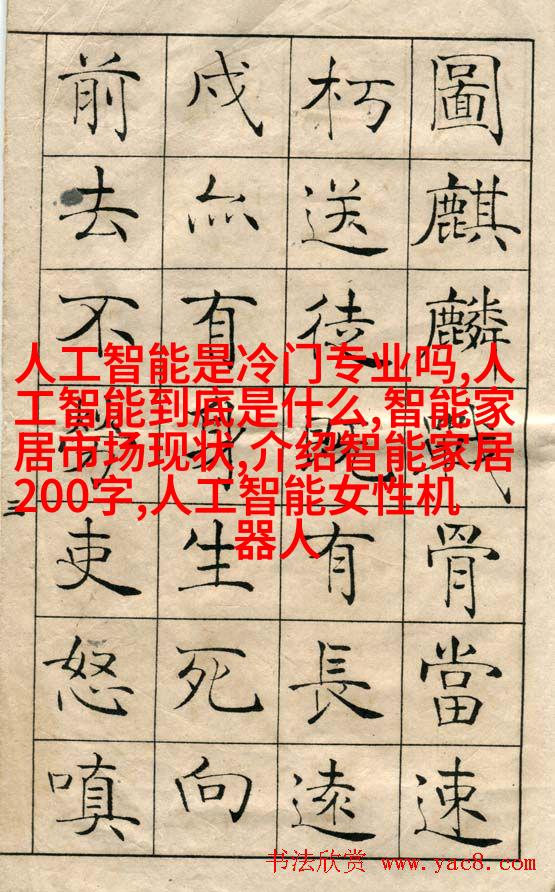 圖麒麟戰骨當速
朽送徒既有長遠
戍亦有身生死向
前去不勞吏怒嗔
人工智能是冷门专业吗,人
工智能到底是什么,智能家
居市场现状,介绍智能家居
200字,人工智能女性机
器人
书法欣赏 www.yac8.com